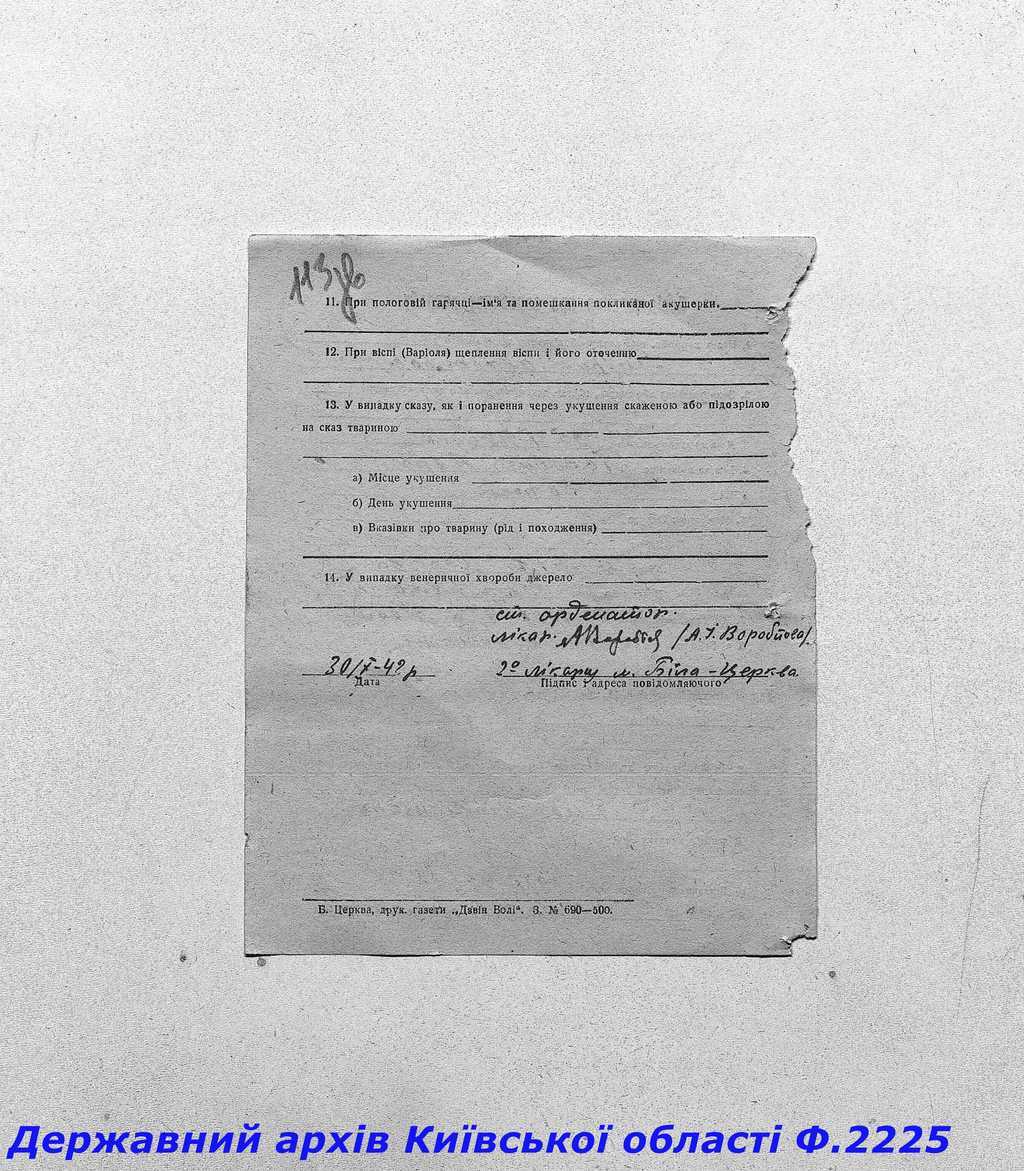 113
11. При пологовій гарячці—ім'я та помешкання покликаної акушерки.
12. При віспі (Варіоля) щеплення віспи і його оточенню
13. У випадку сказу, як і поранення через укушення скаженою або підозрілою
на сказ твариною
а) Місце укушення
б) День укушення
в) Вказівки про тварину (рід і походження)
14. У випадку венеричної хвороби джерело
ст. орденатор.
лікар. /А.І. Воробйова/.
30/X-42 р 2º лікарні м. Біла-Церква.
Дата Підпис і адреса повідомляючого
Б. Церква, друк. газети „Дзвін Волі“. З. № 690—500.
Державний архів Київської області Ф.2225